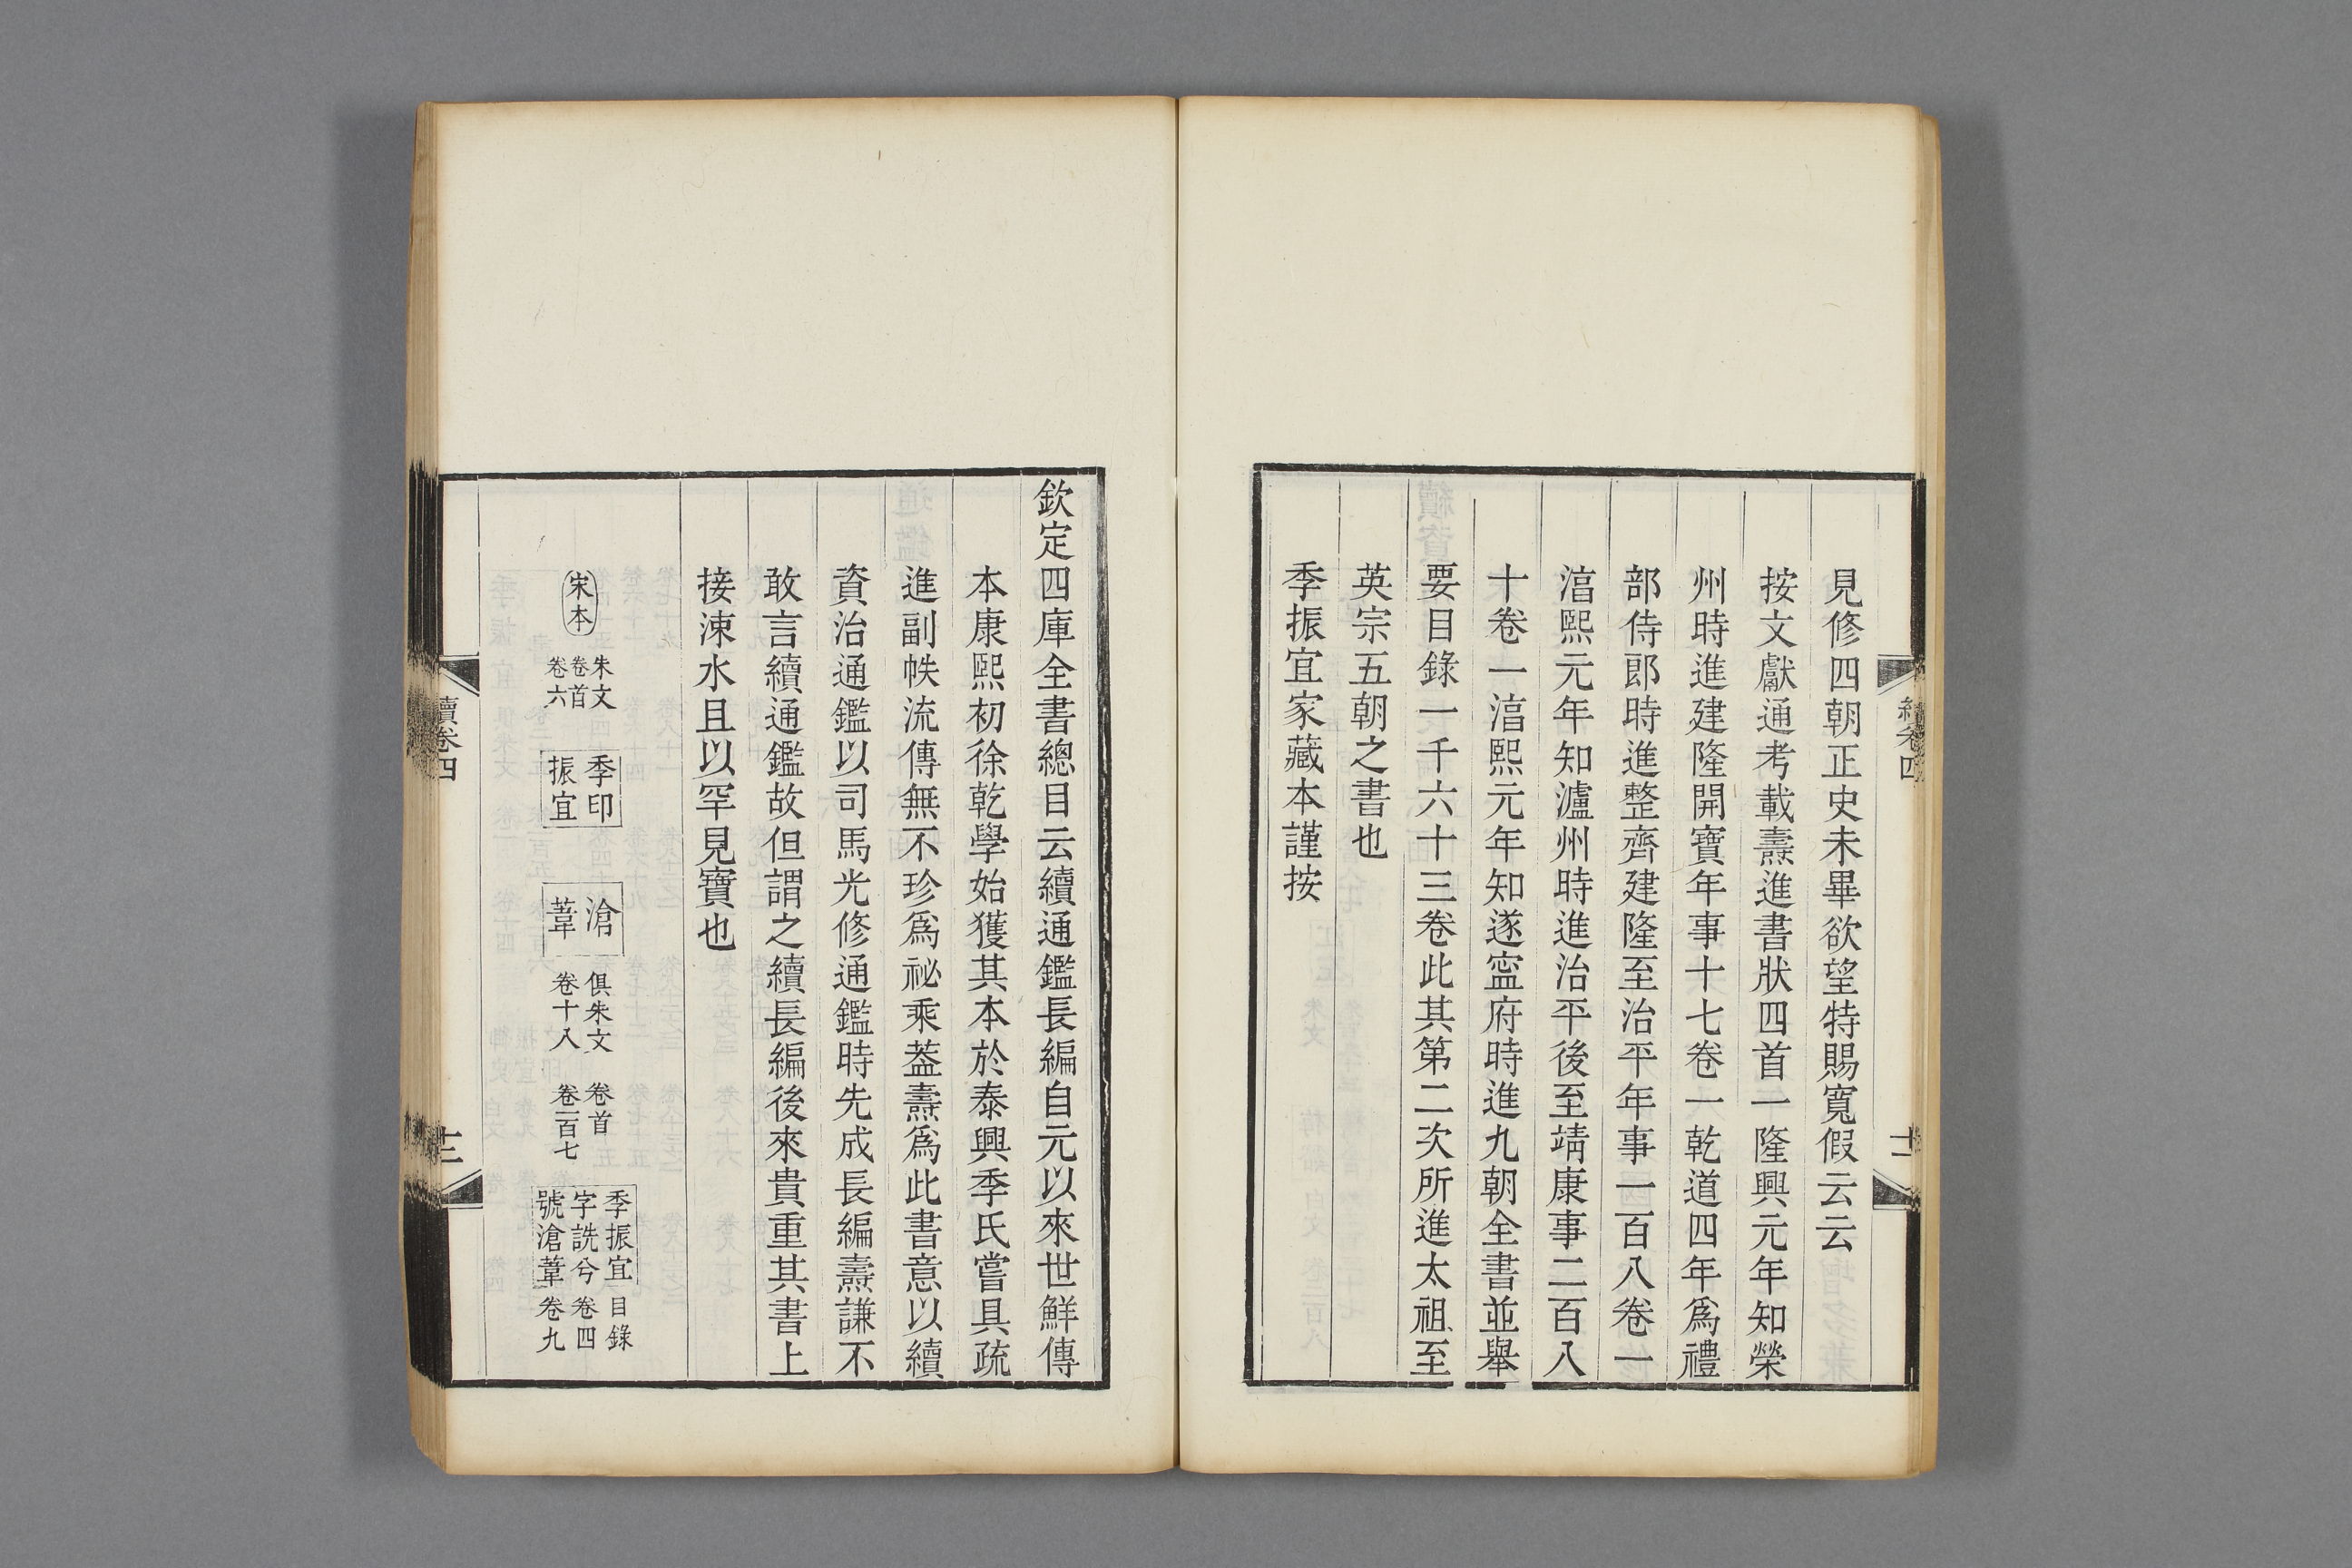 見修四朝正史未畢欲望特賜寬假云云
按文獻通考載燾進書狀四首一隆興元年知榮
州時進建隆開寶年事十七卷一乾道四年爲禮
部侍郎時進整齊建隆至治平年事一百八卷一
湻熙元年知瀘州時進治平後至靖康事二百八
十卷一湻熙元年知遂寍府時進九朝全書並舉
要目錄一千六十三卷此其第二次所進太祖至
英宗五朝之書也
季振宜家藏本謹按
欽定四庫全書總目云續通鑑長編自元以來世鮮傳
本康熙初徐乾學始獲其本於泰興季氏嘗具疏
進副帙流傳無不珍爲祕乘葢燾爲此書意以續
資治通鑑以司馬光修通鑑時先成長編燾謙不
敢言續通鑑故但謂之續長編後來貴重其書上
接涑水且以罕見寶也
宋本
朱文
卷首
卷六
季印
振宜
滄
葦
俱朱文
卷十八
卷首
卷一百七
季振宜
字詵兮
號滄葦
目錄
卷四
卷九
續卷四
十三